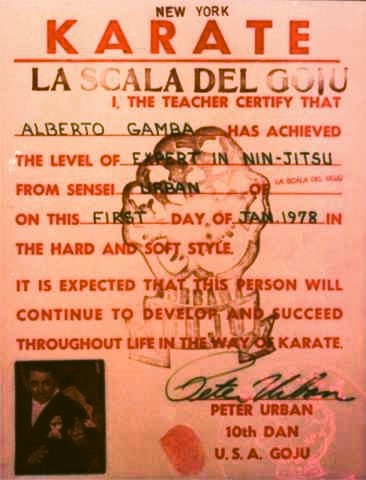 NEW YORK
KARATE
LA SCALA DEL GOJU
I, THE TEACHER CERTIFY THAT
ALBERTO GAMBA HAS ACHIEVED
THE LEVEL OF EXPERT IN NIN-JITSU
FROM SENSEI URBAN OF LA SCALA DEL GOJU
ON THIS FIRST DAY OF JAN. 1978 IN
THE HARD AND SOFT STYLE.
IT IS EXPECTED THAT THIS PERSON WILL
CONTINUE TO DEVELOP AND SUCCEED
THROUGHOUT LIFE IN THE WAY OF KARATE.
URBAN
GOJU
Peter Urban
PETER URBAN
10th DAN
U.S.A. GOJU